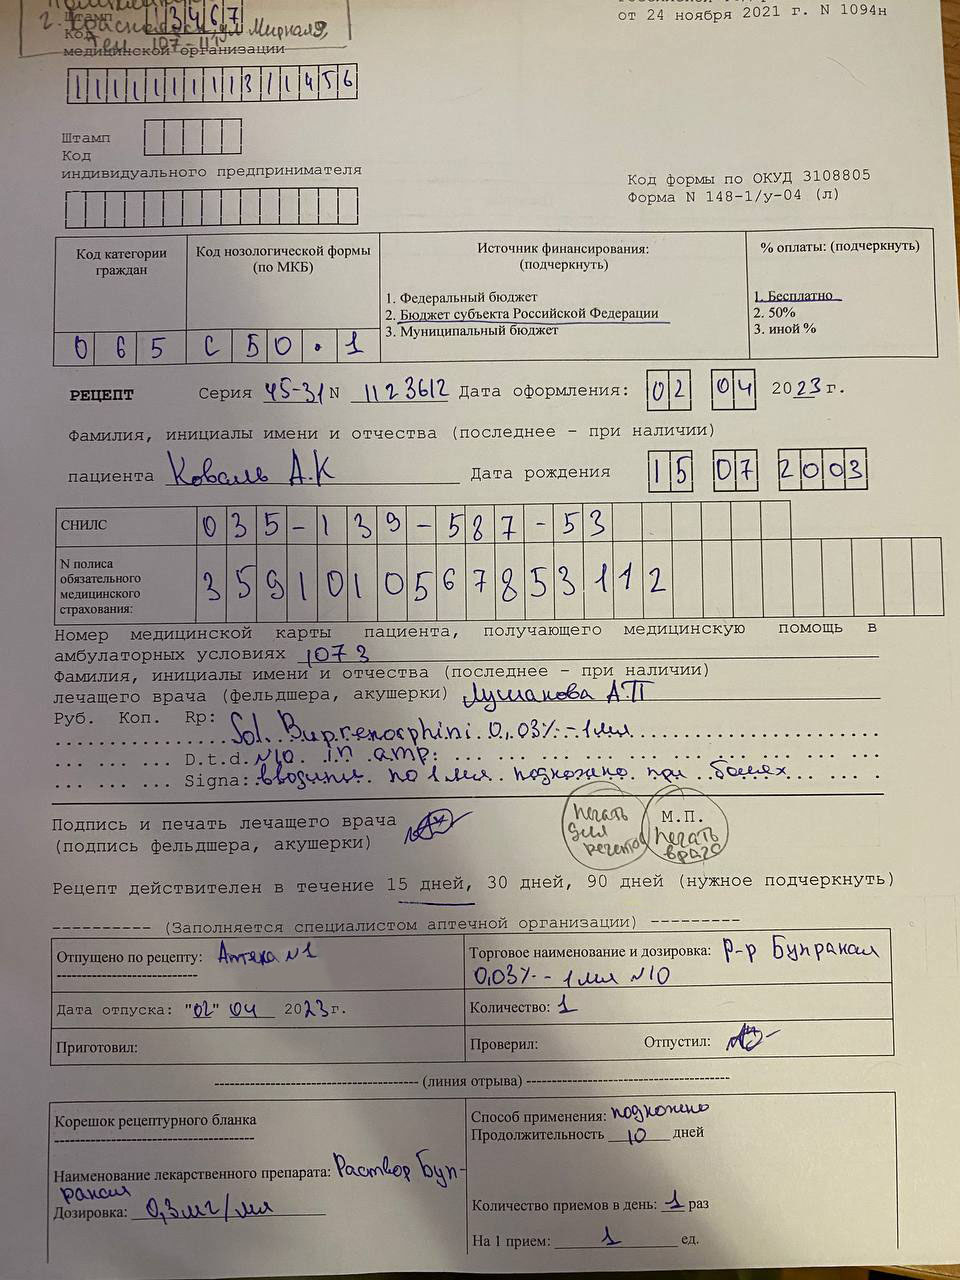 Штамп 3467
г. Краснодар, ул Мирная 9,
Код
Тел 197-111
медицинской организации
1 1 1 1 1 1 1 1 1 3 1 1 4 5 6
от 24 ноября 2021 г. N 1094н
Штамп
Код
индивидуального предпринимателя
Код формы по ОКУД 3108805
Форма N 148-1/у-04 (л)
Код категории граждан
Код нозологической формы (по МКБ)
Источник финансирования:
(подчеркнуть)
1. Федеральный бюджет
2. Бюджет субъекта Российской Федерации
3. Муниципальный бюджет
% оплаты: (подчеркнуть)
1. Бесплатно
2. 50%
3. иной %
0 6 5 C 5 0 . 1
РЕЦЕПТ Серия 45-31 N 1123612 Дата оформления: 02 04 2023 г.
Фамилия, инициалы имени и отчества (последнее - при наличии)
пациента Коваль А.К Дата рождения 15 07 2003
СНИЛС 035-139-587-53
N полиса обязательного медицинского страхования: 3591010567853112
Номер медицинской карты пациента, получающего медицинскую помощь в
амбулаторных условиях 1073
Фамилия, инициалы имени и отчества (последнее - при наличии)
лечащего врача (фельдшера, акушерки) Лушакова А.П
Руб. Коп. Rp: Sol. Buprenorphini 0,03% - 1 мл
D.t.d. №10 in amp:
Signa: вводить по 1 мл подкожно при болях
Подпись и печать лечащего врача
(подпись фельдшера, акушерки)
печать для рецептов
М.П.
печать врача
Рецепт действителен в течение 15 дней, 30 дней, 90 дней (нужное подчеркнуть)
---------- (Заполняется специалистом аптечной организации) ---------
Отпущено по рецепту: Аптека №1
Торговое наименование и дозировка: р-р Бупранал
0,03% - 1 мл №10
Дата отпуска: "02" 04 2023г.
Количество: 1
Приготовил:
Проверил: Отпустил:
(линия отрыва)
Корешок рецептурного бланка
Способ применения: подкожено
Продолжительность 10 дней
Наименование лекарственного препарата: Раствор Буп-
ранал
Дозировка: 0,3 мг/мл
Количество приемов в день: 1 раз
На 1 прием: 1 ед.